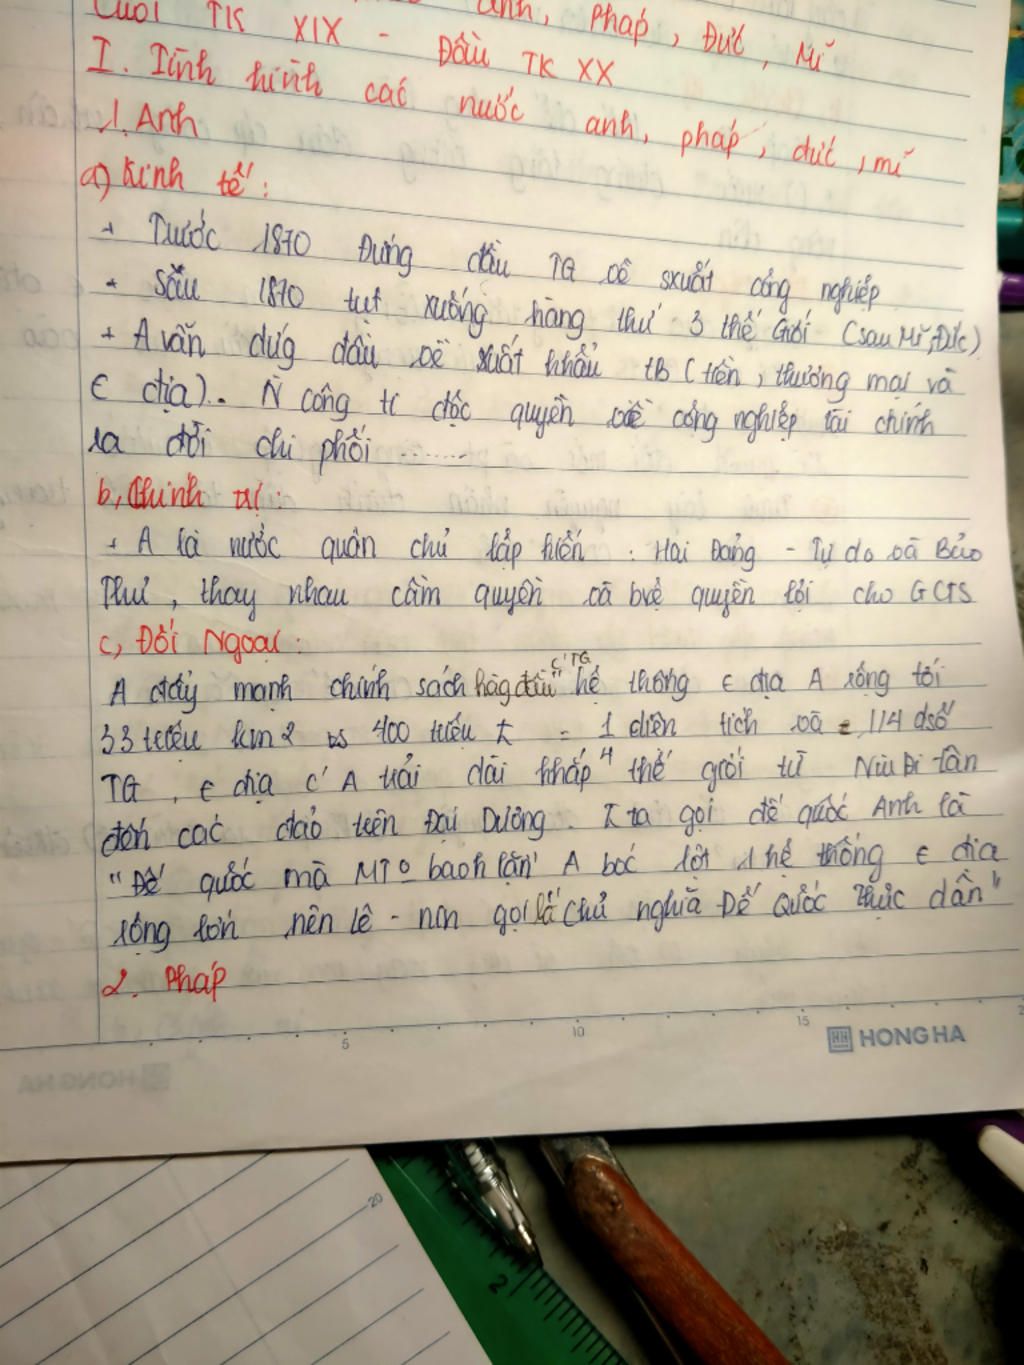 Cuối TK XIX - Đầu TK XX
anh, Pháp, Đức, Mĩ
I. Tình hình các nước anh, pháp, đức, mĩ
1. Anh
a) Kinh tế:
+ Trước 1870 Đứng đầu TG về sxuất công nghiệp
+ Sau 1870 tụt xuống hàng thứ 3 thế Giới (sau Mĩ, Đức)
+ A vẫn đứg đầu về xuất khẩu tB (tiền, thương mại và
є địa).. Ñ công ti độc quyền về công nghiệp tài chính
ra đời chi phối .......
b, Chính trị:
+ A là nước quân chủ lập hiến : Hai Đảng - Tự do và Bảo
Thủ, thay nhau cầm quyền và bvệ quyền lợi cho GCTS
c, Đối Ngoại:
A đẩy mạnh chính sách hàg đầu" hệ thống є địa A rộng tới
c' TG
33 triệu km2 vs 400 triệu = 1 diện tích và = 1/4 dsố
TG, є địa c' A trải dài khắp thế giới từ Niu Di lân
đến các đảo trên Đại Dương. ta gọi đế quốc Anh là
"Đế quốc mà MT bao h lặn" A bóc lột 1 hệ thống є địa
rộng lớn nên lê - nin gọi là "chủ nghĩa Đế Quốc Thực dân"
2. Pháp
5 10 15
HONG HA
20
2